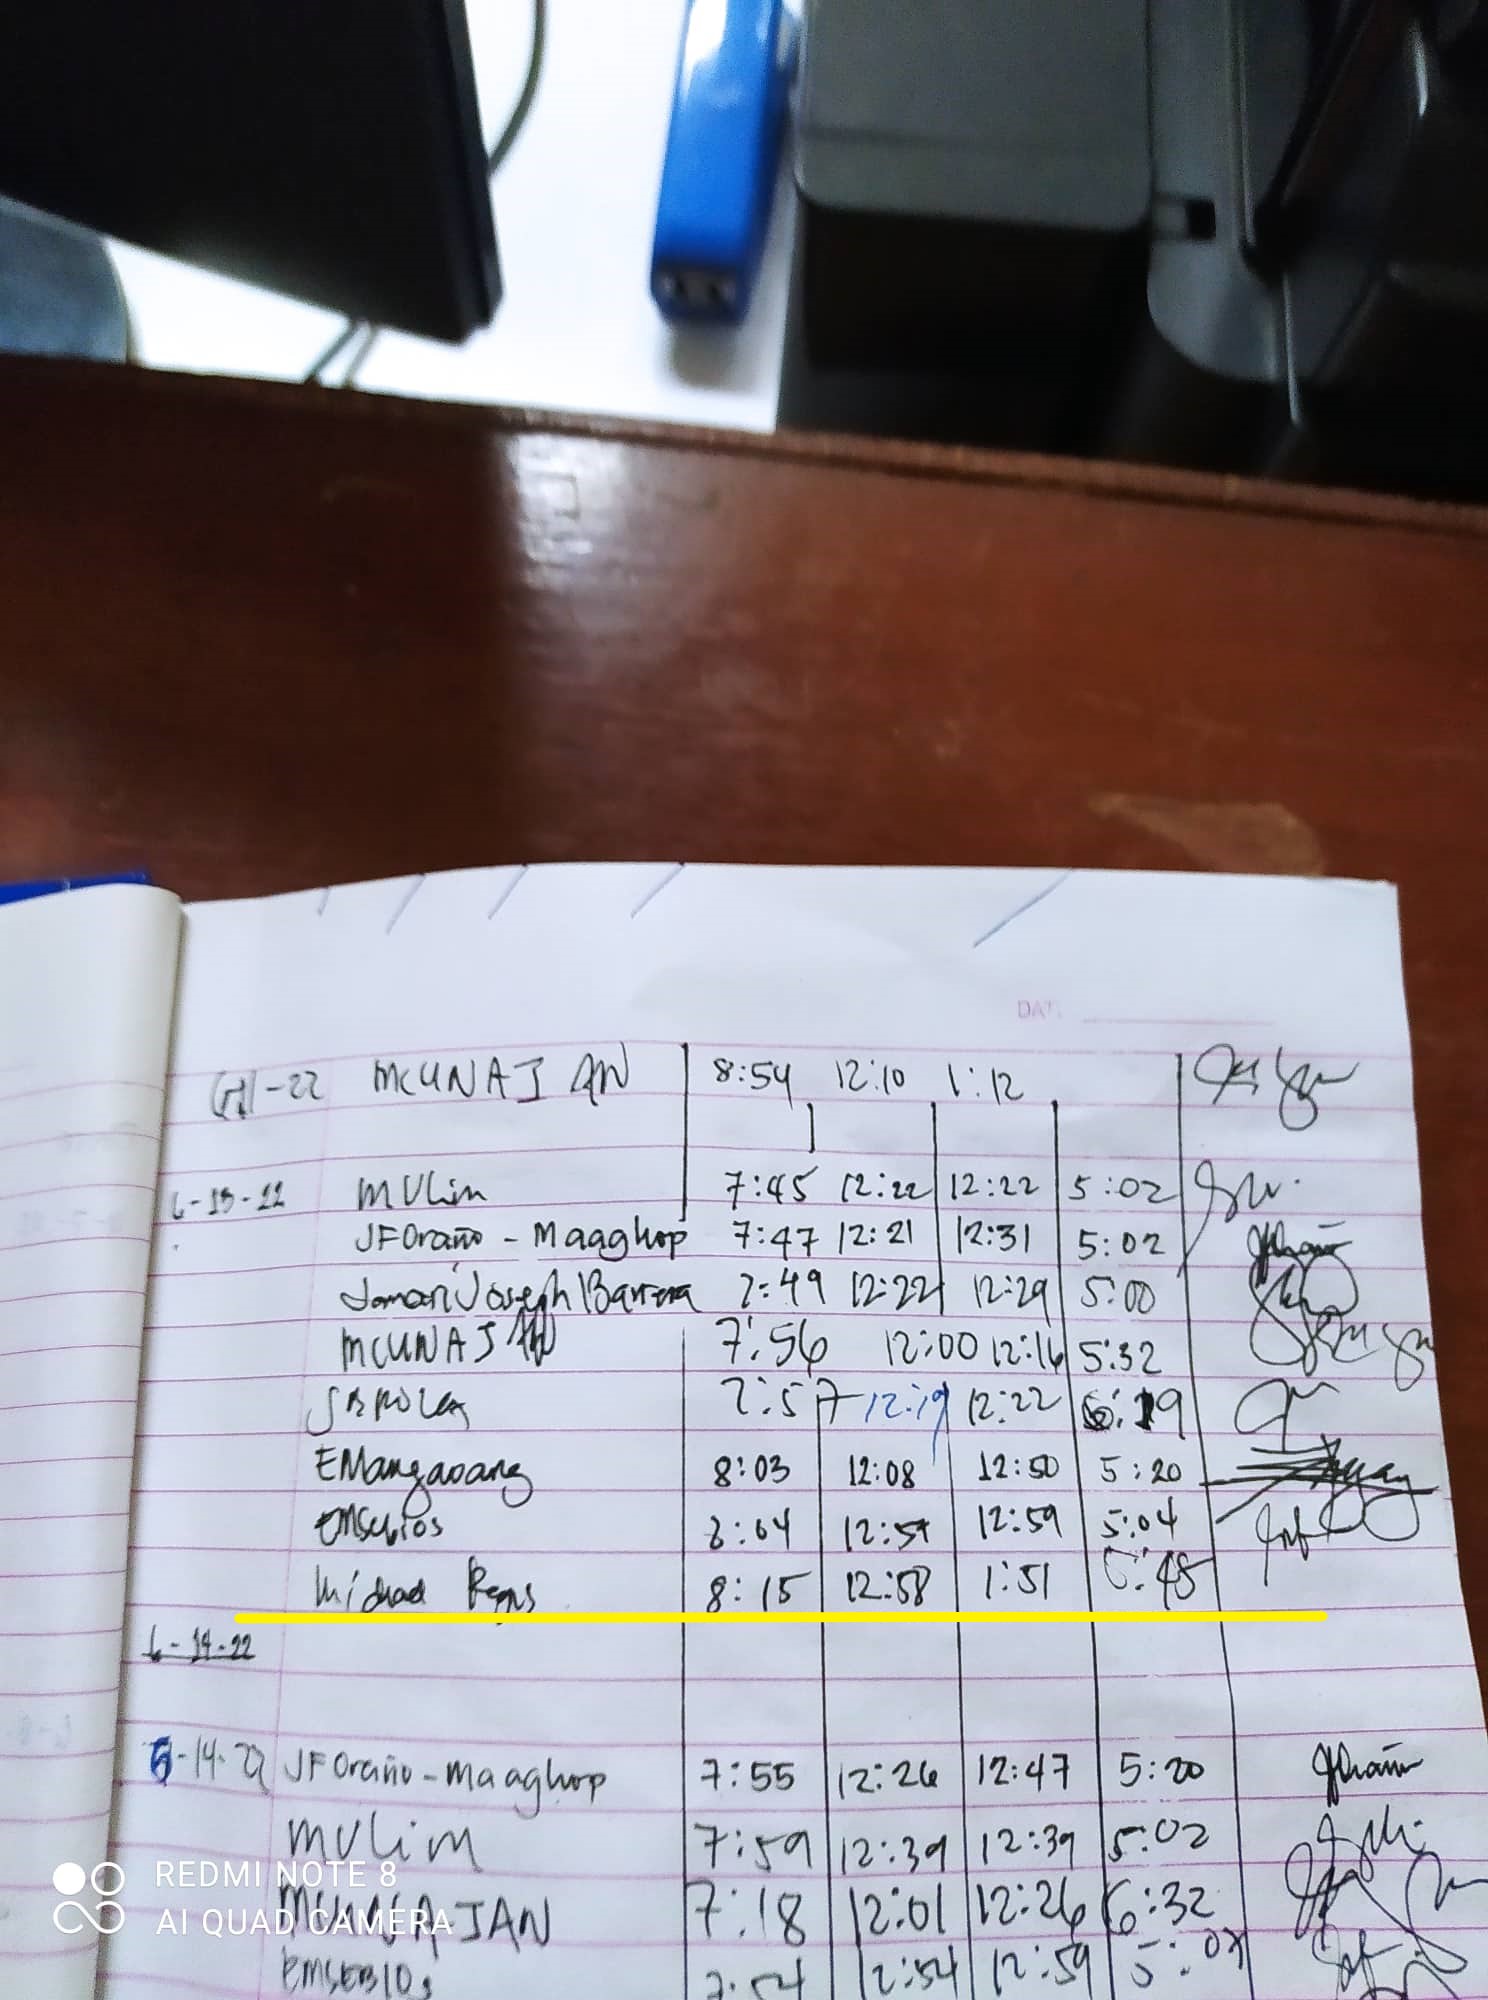 -22 MCUNAJ AN 8:54 12:10 1:12
6-13-22 MVLim 7:45 12:22 12:22 5:02
JFOraño - Maaghop 7:47 12:21 12:31 5:02
Jomari Joseph Barrera 7:49 12:22 12:29 5:00
MCUNAJAN 7:56 12:00 12:16 5:32
7:57 12:19 12:22 6:19
EMangaoang 8:03 12:08 12:50 5:20
EMSebios 8:04 12:59 5:04
Michael 8:15 12:58 1:51 :48
6-14-22
6-14-22 JFOraño - Maaghop 7:55 12:26 12:47 5:20
MVLim 7:59 12:39 12:39 5:02
MCUNAJAN 7:18 12:01 12:26 6:32
EMSEBIOS 7:54 12:54 12:59
REDMI NOTE 8
AI QUAD CAMERA